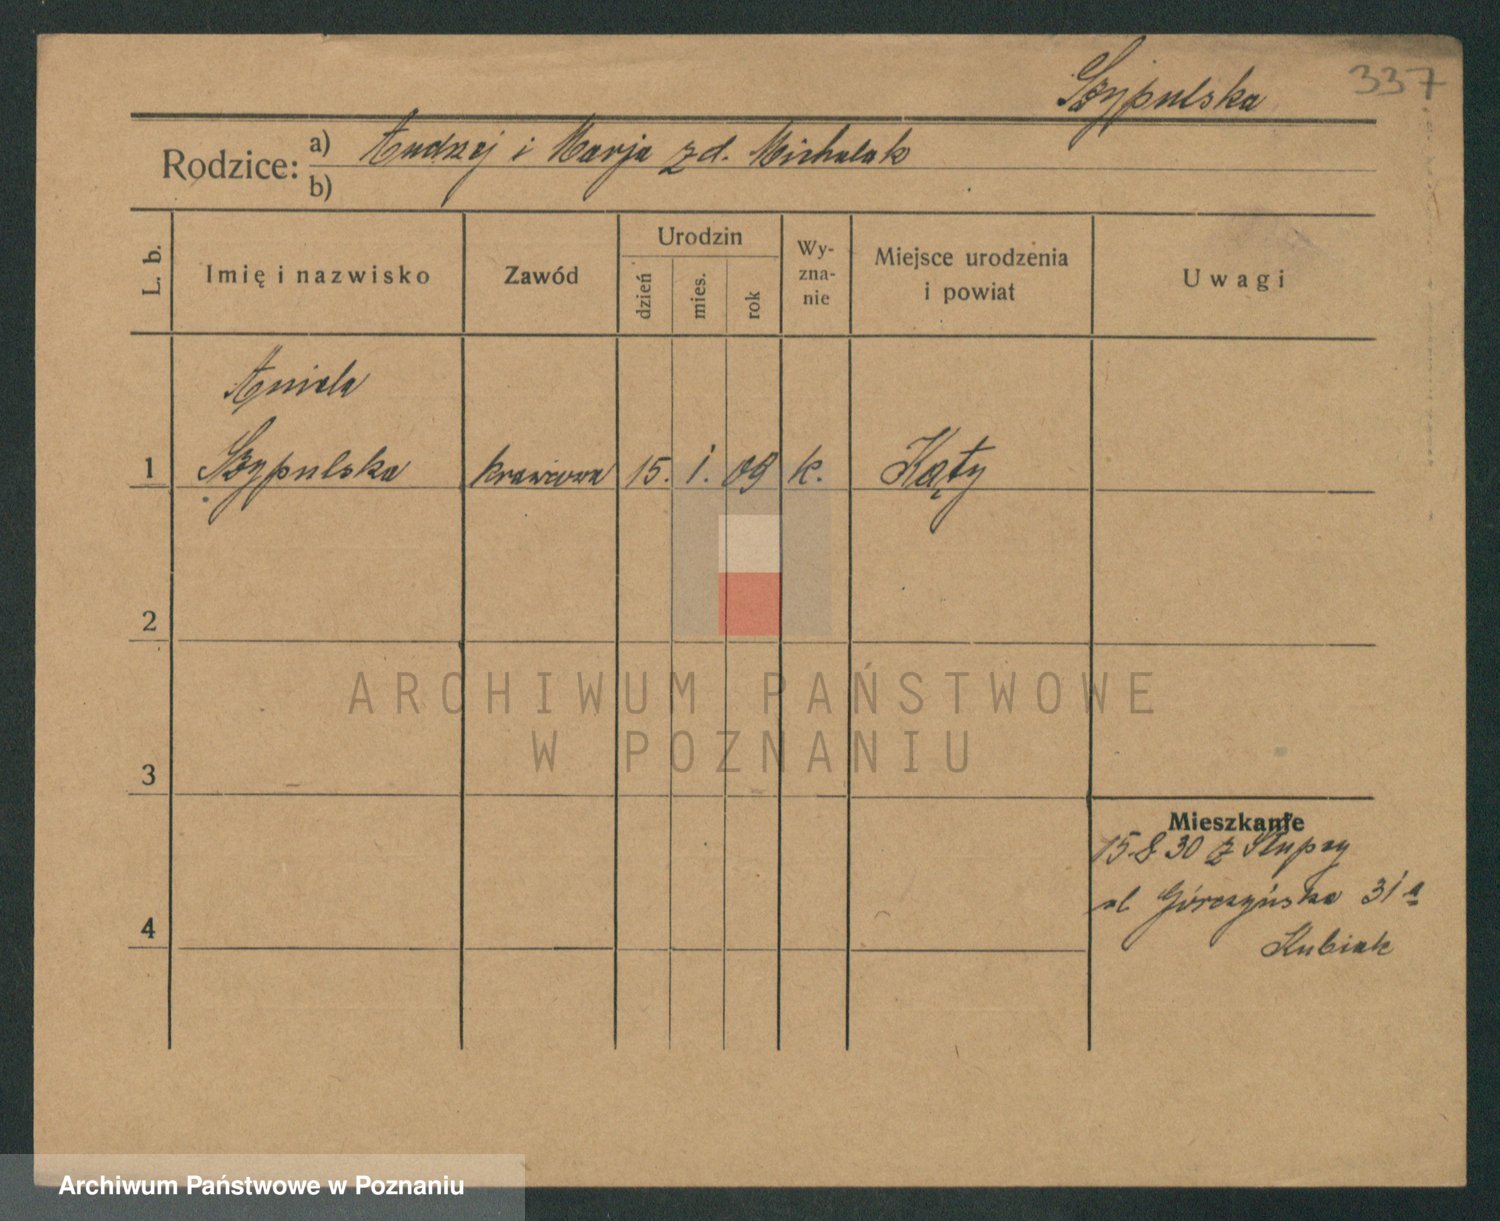 Szypulska
337
Rodzice: a) Andrzej i Marja z d. Michalak
b)
L. b.
Imię i nazwisko
Zawód
Urodzin
dzień
mies.
rok
Wy-
zna-
nie
Miejsce urodzenia
i powiat
Uwagi
Aniela
1 Szypulska krawcowa 15. 1. 09 k. Kąty
2
3
4
Mieszkanie
15.8 30 z Słupcy
ul Górczyńska 31 a
Kubiak
ARCHIWUM PAŃSTWOWE
W POZNANIU
Archiwum Państwowe w Poznaniu